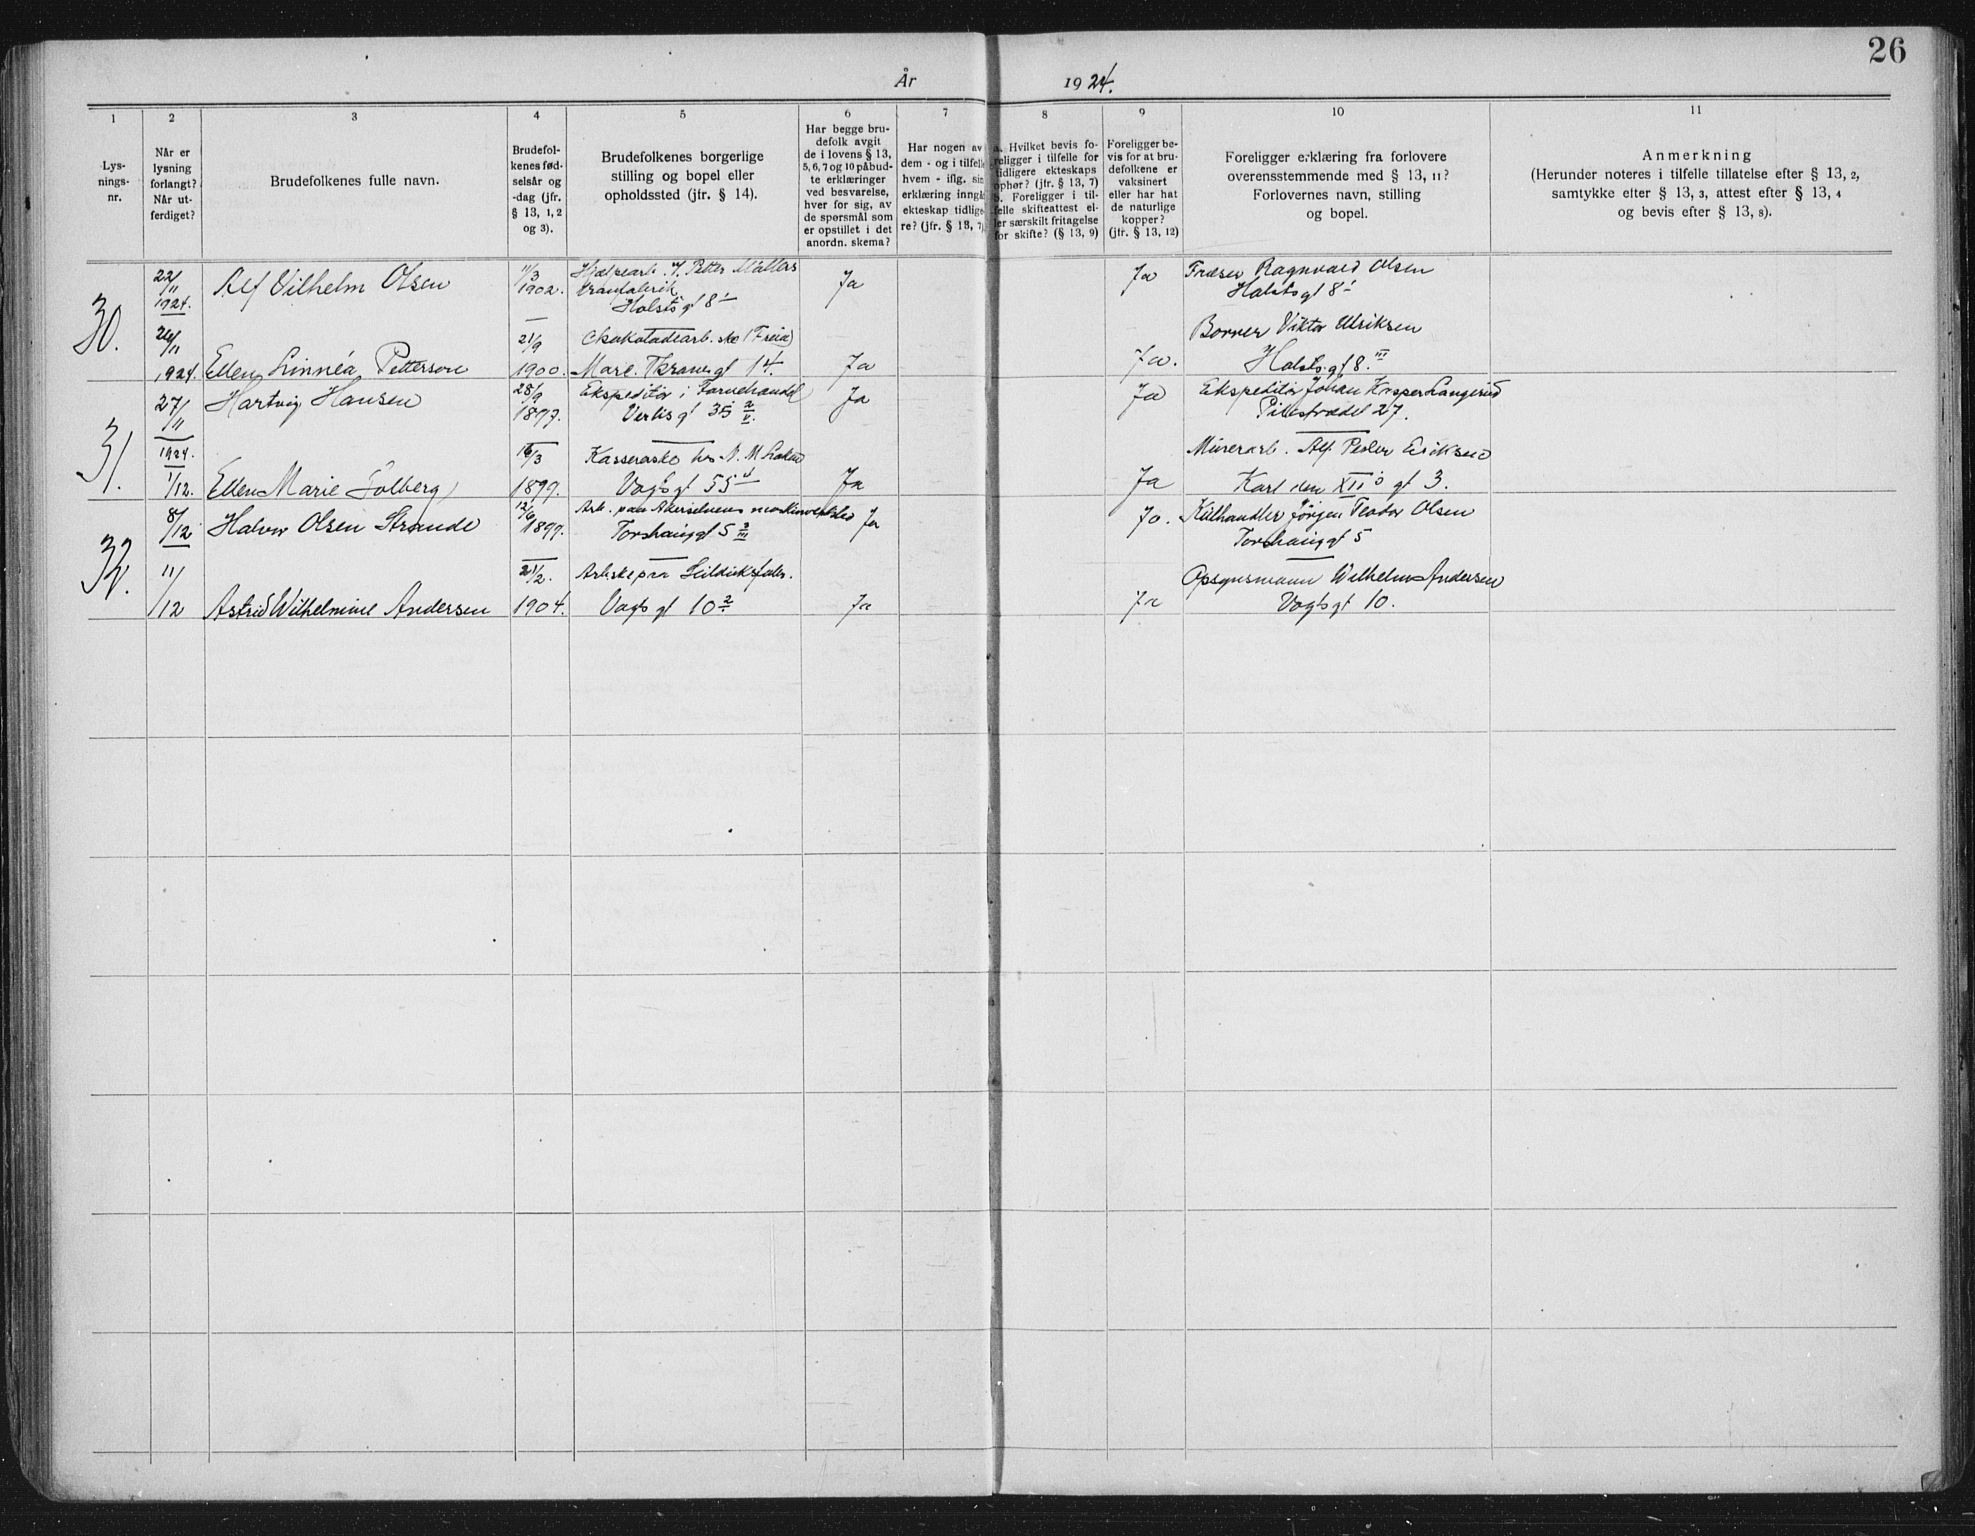 26
År 1924.
1 2 3 4 5 6 7 8 9 10 11
Lys-
nings-
nr.
Når er
lysning
forlangt?
Når ut-
ferdiget?
Brudefolkenes fulle navn.
Brudefol-
kenes fød-
selsår og
-dag (jfr.
§ 13, 1, 2
og 3).
Brudefolkenes borgerlige
stilling og bopel eller
opholdssted (jfr. § 14).
Har begge bru-
defolk avgit
de i lovens § 13,
5, 6, 7 og 10 påbud-
te erklæringer
ved besvarelse,
hver for sig, av
de spørsmål som
er opstillet i det
anordn. skema?
Har nogen av
dem - og i tilfelle
hvem - iflg. sin
erklæring inngåt
ekteskap tidlige-
re? (jfr. § 13, 7)
a. Hvilket bevis fo-
religger i tilfelle for
tidligere ekteskaps
ophør? (jfr. § 13, 7)
b. Foreligger i til-
felle skifteattest el-
ler særskilt fritagelse
for skifte? (§ 13, 9)
Foreligger be-
vis for at bru-
defolkene er
vaksinert
eller har hat
de naturlige
kopper?
(jfr. § 13, 12)
Foreligger erklæring fra forlovere
overensstemmende med § 13, 11?
Forlovernes navn, stilling
og bopel.
Anmerkning
(Herunder noteres i tilfelle tillatelse efter § 13, 2,
samtykke efter § 13, 3, attest efter § 13, 4
og bevis efter § 13, 8).
30.
22/11
1924.
Alf Vilhelm Olsen
11/3
1902.
Hjælpearb. Petter Møllers
tranfabrik
Holsts gt 8
Ja
Ja
Fræser Ragnvald Olsen
Holsts gt 8
/11
1924.
Ellen Linnéa Petterson
21/9
1900.
Chokoladearb.ske (Freia)
Marc. Thranes gt 14.
Ja
Ja.
Borrer Viktor Ulriksen
Holsts gt 8. III
31.
27/11
1924.
Hartvig Hansen
28/9
1897.
Ekspeditør i Farvehandel
gt 35
Ja
Ja
Ekspeditør Johan Kasper Langerud
Pilestrædet 27.
1/12.
Ellen Marie Solberg
16/3
1899.
Kassererske hos N. M.
Vogts gt 55
Ja
Ja
Murerarb. Alf Peder Eriksen
Karl den XII's gt 3.
32.
8/12
Halvor Olsen Strande
12/6
1899.
Arb. paa Akerselvens mek.
Torshauggt 5
Ja
Ja.
Kulhandler Jörgen Teodor Olsen
Torshauggt 5
11/12
Astrid Wilhelmine Andersen
21/2.
1904.
Arb.ske paa
Vogts gt 10
Ja
Ja
Opsynsmann Wilhelm Andersen
Vogts gt 10.